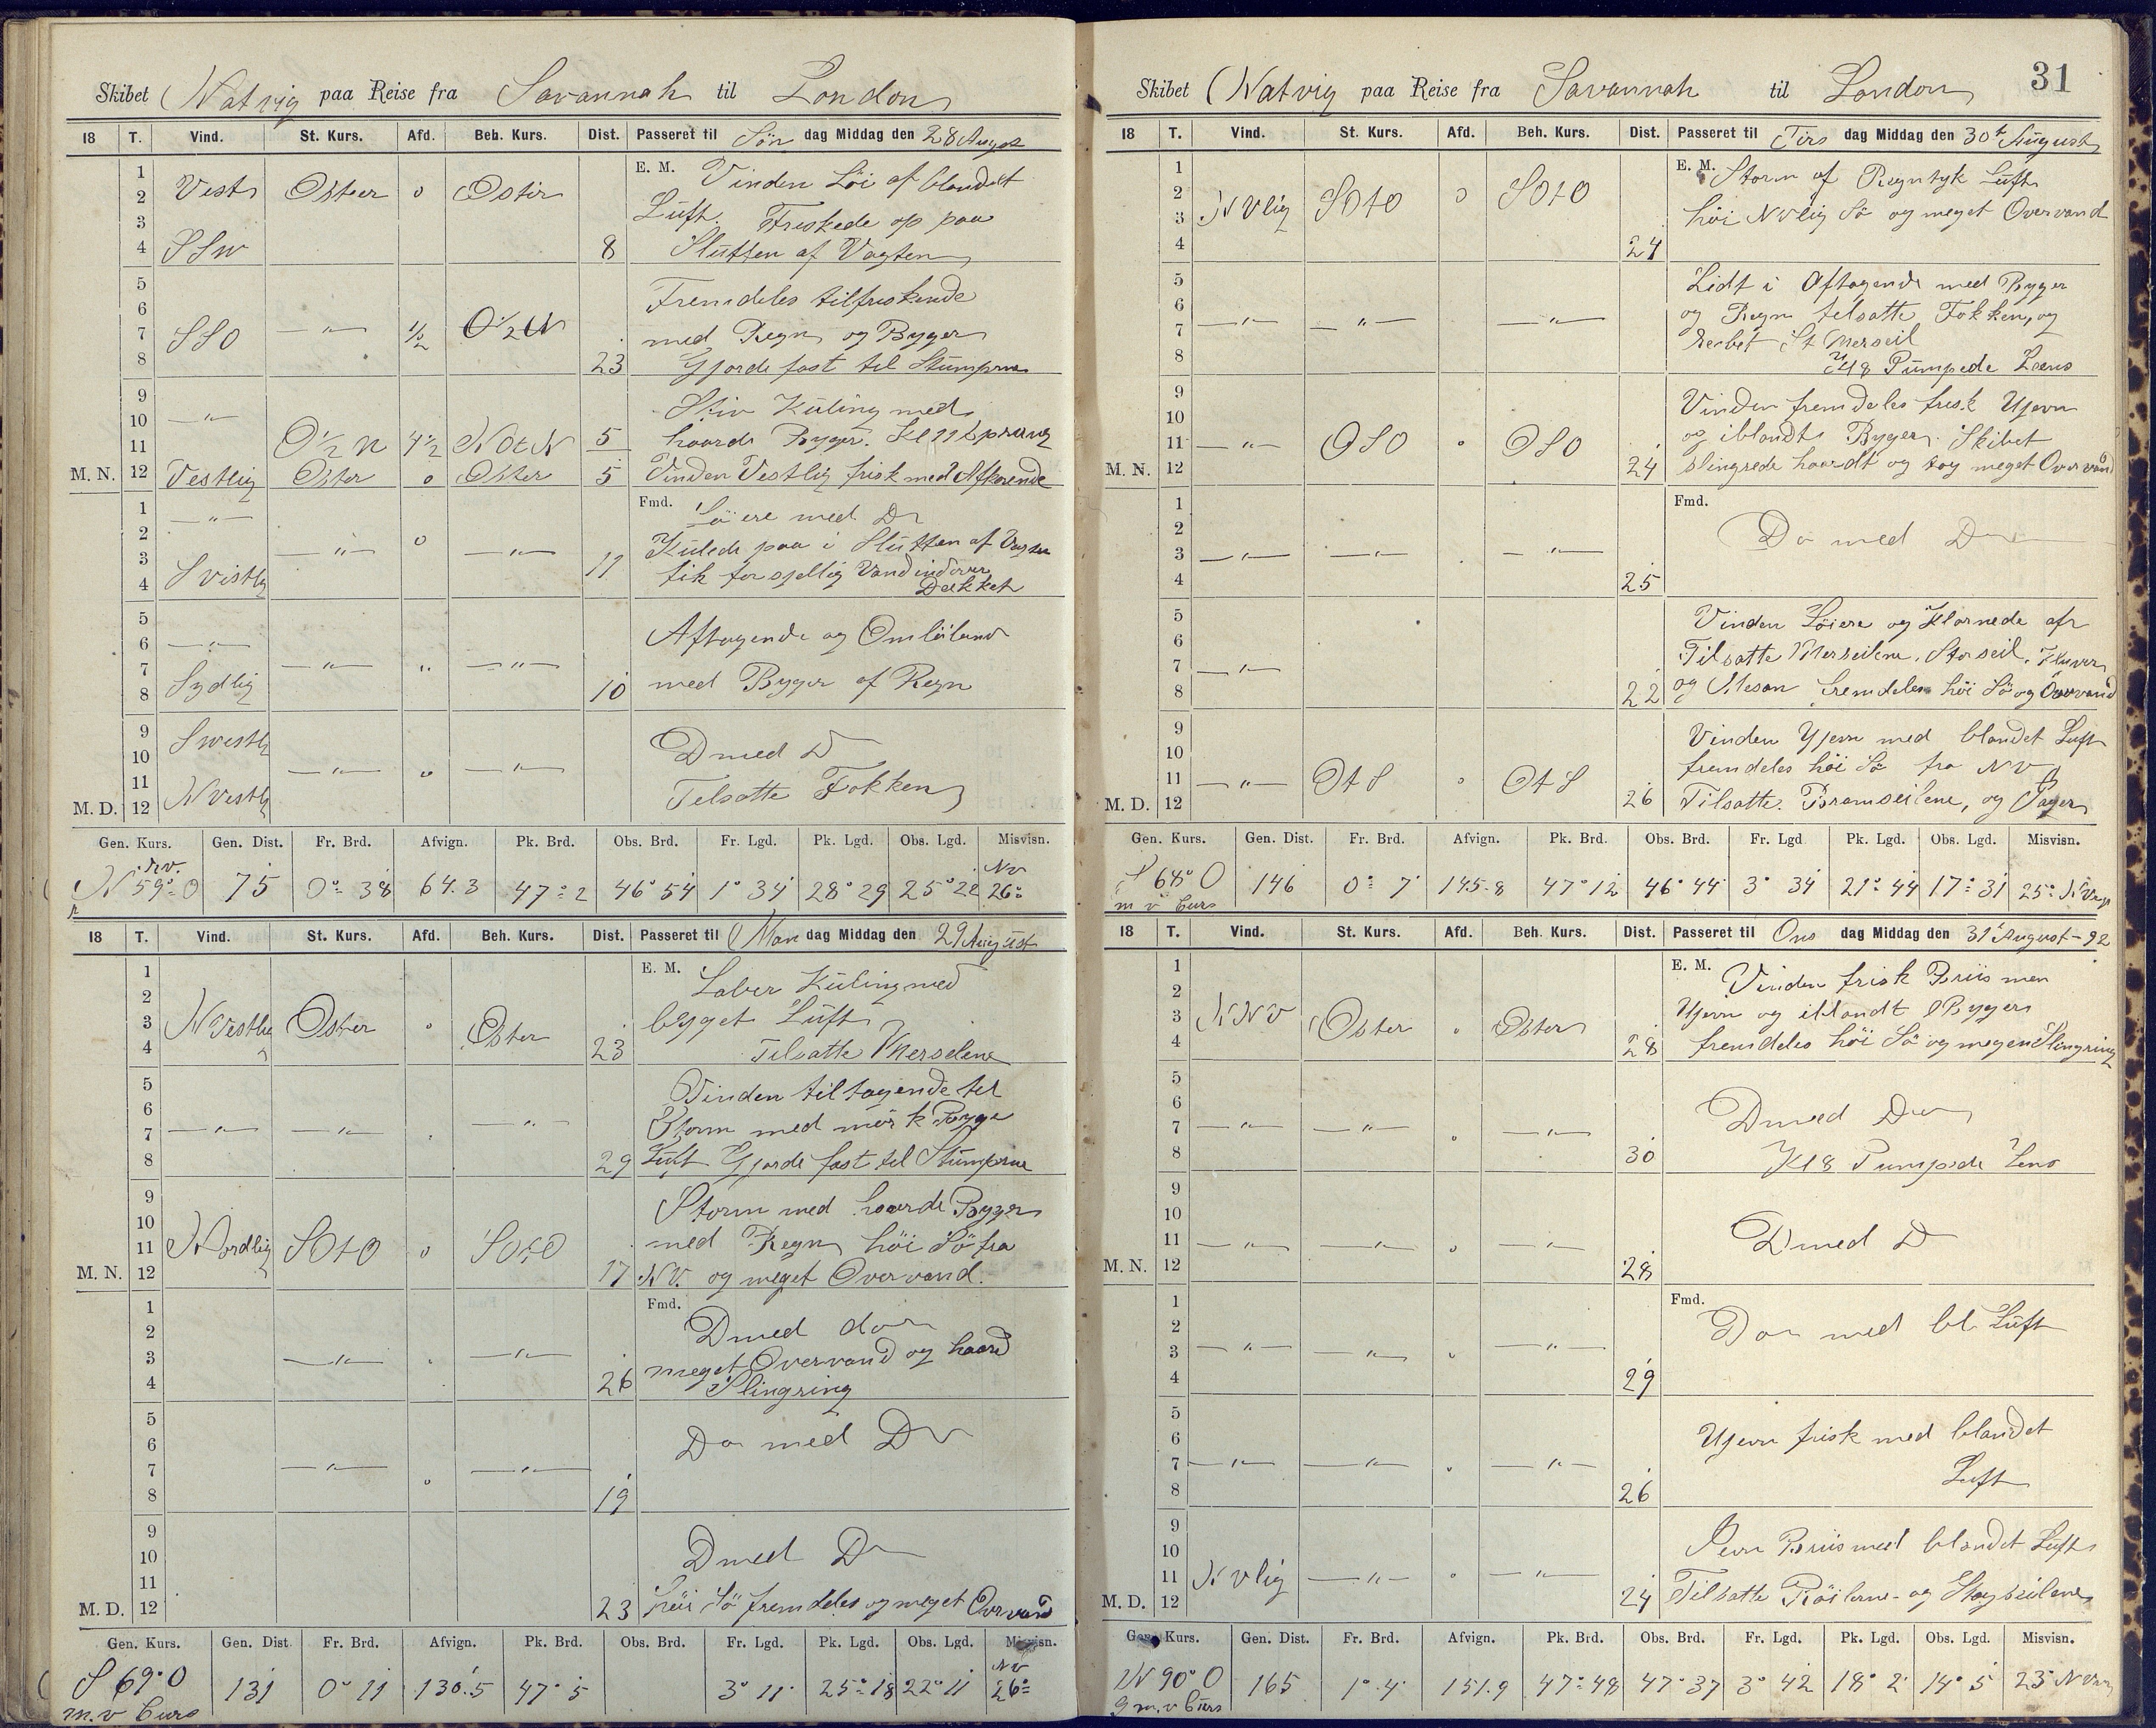 Skibet Natvig paa Reise fra Savannah til London
18 T. Vind. St. Kurs. Afd. Beh. Kurs. Dist. Passeret til Søn dag Middag den 28 August
1 E. M. Vinden Löi af blandet
2 Vest Oster o Oster Luft. Friskede op paa
3
4 SSW 8 Slutten af Vagten
5 Fremdeles tilfriskende
6
7 SSO —"— 1/2 O 1/2 N med Regn og Byger
8 23 Gjorde fast til Stumpene
9 Stiv Kuling med
10 —"—
11 O 1/2 N 4 1/2 NOtN 5 haarde Byger. Kl 11 sprang
M. N. 12 Vestlig Oster o Oster 5 Vinden Vestlig frisk med
1 —"— Fmd. Löiere med Do
2
3 —"— o —"— Kulede paa i Slutten af Vagten
4 SVestlig 11 fik forsjellig Vand indover
Dækket
5 Aftagende og Omlöbende
6 —"—
7 Sydlig —"— " —"—
8 10 med Byger af Regn
9 SWestlig D med D
10
11 —"— o —"—
M. D. 12 NVestlig Tilsatte Fokken
Gen. Kurs. Gen. Dist. Fr. Brd. Afvign. Pk. Brd. Obs. Brd. Fr. Lgd. Pk. Lgd. Obs. Lgd. Misvisn.
N 59° O 75 0° 38 64.3 47° 2 46° 54 1° 34 28° 29 25° 22 NV 26°
18 T. Vind. St. Kurs. Afd. Beh. Kurs. Dist. Passeret til Man dag Middag den 29 August
1 E. M. Laber Kuling med
2
3 NVestlig Oster o Oster bygget Luft
4 23 Tilsatte Merseilene
5 Vinden tiltagende til
6
7 —"— —"— —"— Storm med mörk Byge
8 29 Luft Gjorde fast til Stumpene
9 Storm med haarde Byger
10
11 Nordlig SOtO o SOtO med Regn höi Sö fra
M. N. 12 17 NV. og meget Overvand.
1 Fmd. D med do
2
3 —"— —"— meget Overvand og haard
4 26 Slingring
5 Do med Do
6
7 —"— o —"—
8 19
9 D med D
10
11
M. D. 12 23 höi Sö fremdeles og meget Overvand
Gen. Kurs. Gen. Dist. Fr. Brd. Afvign. Pk. Brd. Obs. Brd. Fr. Lgd. Pk. Lgd. Obs. Lgd. Misvisn.
S 69° O 131 0° 11 130.5 47° 5 3° 11 25° 18 22° 11 NV 26°
m.v Curs
31
Skibet Natvig paa Reise fra Savannah til London
18 T. Vind. St. Kurs. Afd. Beh. Kurs. Dist. Passeret til Tirs dag Middag den 30t August
1 E. M. Storm af Regntyk Luft
2
3 NVlig SOtO o SOtO höi NVlig Sö og meget Overvand
4 24
5 Lidt i Aftagende med Byger
6 og Regn tilsatte Fokken, og
7 —"— —"— —"— Rerbet St Merseil
8 Kl 8 Pumpede Læns
9 Vinden fremdeles frisk Ujevn
10
11 —"— OSO o OSO og iblandt Byger. Skibet
M. N. 12 24 slingrede haardt og tog meget Overvand
1 Fmd.
2 Do med Do
3 —"— —"— —"—
4 25
5 Vinden Löiere og Klarnede af
6 Tilsatte Merseilene, Storseil, Kluver
7 —"—
8 22 og Mesan fremdeles höi Sö og Overvand
9 Vinden Ujevn med blandet Luft
10 fremdeles höi Sö fra NV
11 —"— OtS o OtS
M. D. 12 26 Tilsatte Bramseilene, og
Gen. Kurs. Gen. Dist. Fr. Brd. Afvign. Pk. Brd. Obs. Brd. Fr. Lgd Pk. Lgd. Obs. Lgd. Misvisn.
S 68° O 146 0° 7' 145.8 47° 12 46° 44 3° 34 21° 44 17° 31 25°
m v Curs
18 T. Vind. St. Kurs. Afd. Beh. Kurs. Dist. Passeret til Ons dag Middag den 31 August - 92
1 E. M. Vinden frisk Briis men
2
3 NNV Oster " Oster Ujevn og iblandt Byger
4 28 fremdeles höi Sö og megen Slingring
5
6 D med Do
7 —"— —"— o —"—
8 30 Kl 8 Pumpede Lens
9
10 D med D
11 —"— —"— o —"—
M. N. 12 28
1 Fmd.
2 Do med bl. Luft
3 —"— —"— " —"—
4 29
5
6 Ujevn frisk med blandet
7 —"— —"— " —"—
8 26 Luft
9
10 Jevn Briis med blandet Luft
11 NVlig —"— o —"—
M. D. 12 24 Tilsatte Röilerne - og Stagseilene
Gen. Kurs. Gen. Dist. Fr. Brd. Afvign. Pk. Brd. Obs. Brd. Fr. Lgd. Pk. Lgd. Obs. Lgd. Misvisn.
N 90° O 165 1° 4' 151.9 47° 48 47° 37 3° 42 18° 2' 14° 5 23°
m.v Curs